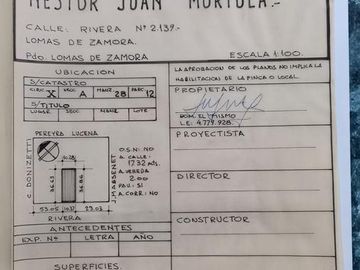 NESTOR JUAN MORTOLA.-
CALLE: RIVERA Nº 2139.-
LOMAS DE ZAMORA.
Pdo: LOMAS DE ZAMORA
ESCALA 1:100.
UBICACION
S/CATASTRO
CIRC X SECC A MANZ 28 PARC 12
S/TITULO
LUGAR SECC. MANZ LOTE
PEREYRA LUCENA
C. DONIZETTI
J. MASSENET
10.28
36.63
36.86
53.05 10.17 23.03
RIVERA
O.S: NO
A. CALLE:
17.32 MTS.
A. VEREDA
2.00
PAV: SI
A. CORR: NO
ANTECEDENTES
EXP. Nº LETRA AÑO
SUPERFICIES.
LA APROBACION DE LOS PLANOS NO IMPLICA LA
HABILITACION DE LA FINCA O LOCAL.
PROPIETARIO
DOM. EL MISMO
L.E: 4.779.928.
PROYECTISTA
DIRECTOR
CONSTRUCTOR